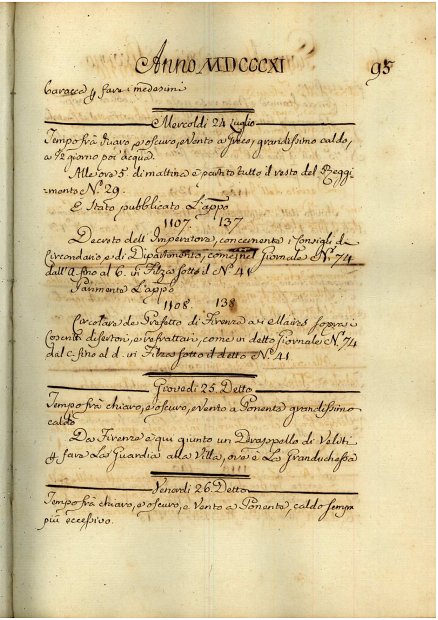 Anno MDCCCXI 95
baracca p fare i medesimi
Mercoldi 24 Luglio
Tempo frà chiaro, e oscuro, e Vento a Greco, grandissimo caldo,
a ½ giorno poi acqua.
Alle ore 5 di mattina è partito tutto il resto del Reggi
mento N.º 29.
È Stato pubblicato L'app.o
1107. 137
Decreto dell'Imperatore, concernente i Consigli di
Circondario, e di Dipartimento, come nel Giornale N.º 74
dall'a. fino al 6. in Filza sotto il N.º 41
Parimente L'app.o
1108. 138
Circolare del Prefetto di Firenze a i Maires sopra i
Coscritti disertori, e refrattari, come in detto Giornale N.º 74
dal c. fino al d. in Filza sotto il detto N.º 41.
Giovedi 25. Detto
Tempo frà chiaro, e oscuro, e Vento a Ponente grandissimo
caldo
Da Firenze è qui giunto un Drappello di Veliti
p fare La Guardia alla Villa, ove è La Granduchessa
Venerdi 26. Detto
Tempo frà chiaro, e oscuro, e Vento a Ponente, caldo sempre
più eccessivo.